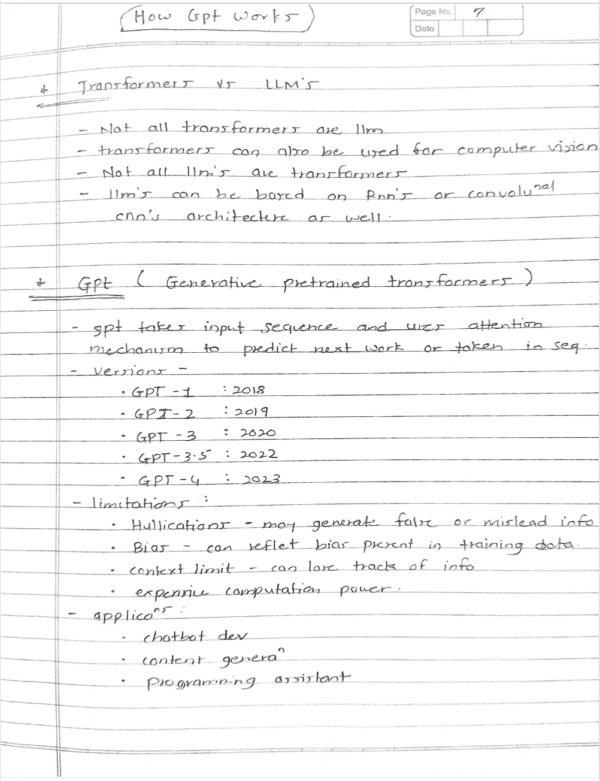 How Gpt Works
Page No. 7
Date
* Transformers vs LLM's
- Not all transformers are llm
- transformers can also be used for computer vision
- Not all llm's are transformers
- llm's can be based on Rnn's or convolunal
cnn's architecture as well.
* Gpt ( Generative pretrained transformers )
- gpt takes input sequence and uses attention
mechanism to predict next work or token in seq.
- versions -
• GPT - 1 : 2018
• GPT - 2 : 2019
• GPT - 3 : 2020
• GPT - 3.5 : 2022
• GPT - 4 : 2023
- limitations :
• Hullications - may generate false or mislead info
• Bias - can reflet bias present in training data.
• context limit - can lose track of info
• expensive computation power.
- applicans :
• chatbot dev
• content generan
• programming assistant